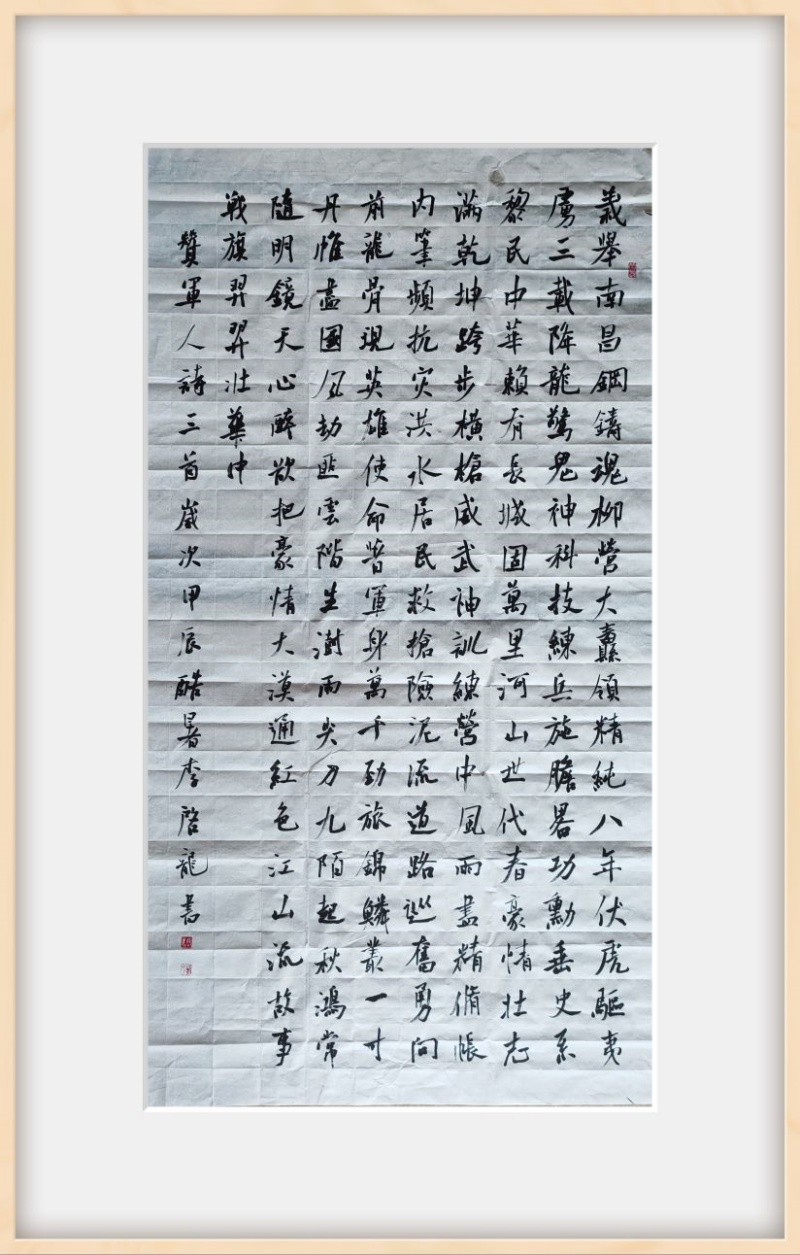 義舉南昌鋼鑄魂柳營大纛領精純八年伏虎驅夷
虜三載降龍驚鬼神科技練兵施膽畧功勳垂史系
黎民中華賴有長城固萬里河山世代春豪情壯志
滿乾坤跨步橫槍威武神訓練營中風雨盡精脩帳
內筆頻抗灾洪水居民救搶險泥流道路巡奮勇向
前龍骨現英雄使命普軍身萬千勁旅錦鱗叢一寸
丹帷盡國風劫匪雲階生澍雨尖刀九陌起秋鴻常
隨明鏡天心醉欲把豪情大漠通紅色江山流故事
戰旗羿羿壯華中
贊軍人詩三首歲次甲辰酷暑李啓龍書